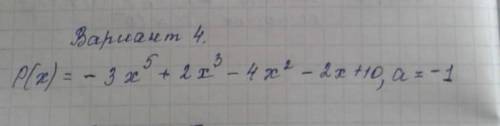 Вариант 4.
P(x) = - 3x⁵ + 2x³ - 4x² - 2x + 10, a = -1